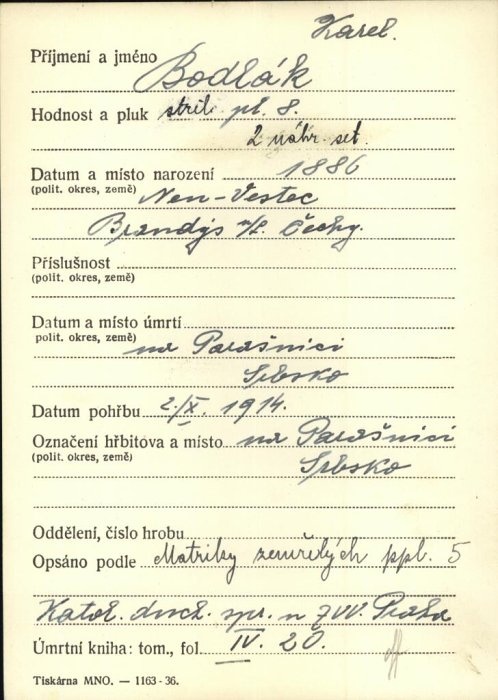 Karel.
Příjmení a jméno Bodlák
Hodnost a pluk střel. pl. 8.
2 náhr. set.
Datum a místo narození 1886
(polit. okres, země) Neu-Vestec
Brandýs n/L. Čechy.
Příslušnost
(polit. okres, země)
Datum a místo úmrtí
polit. okres, země) na Parašnici
Srbsko
Datum pohřbu 2./X. 1914.
Označení hřbitova a místo na Parašnici
(polit. okres, země) Srbsko
Oddělení, číslo hrobu
Opsáno podle Matriky zemřelých ppl. 5
Katol. duch. spr. u ZVV. Praha
Úmrtní kniha: tom., fol. IV. 20.
Tiskárna MNO. — 1163-36.